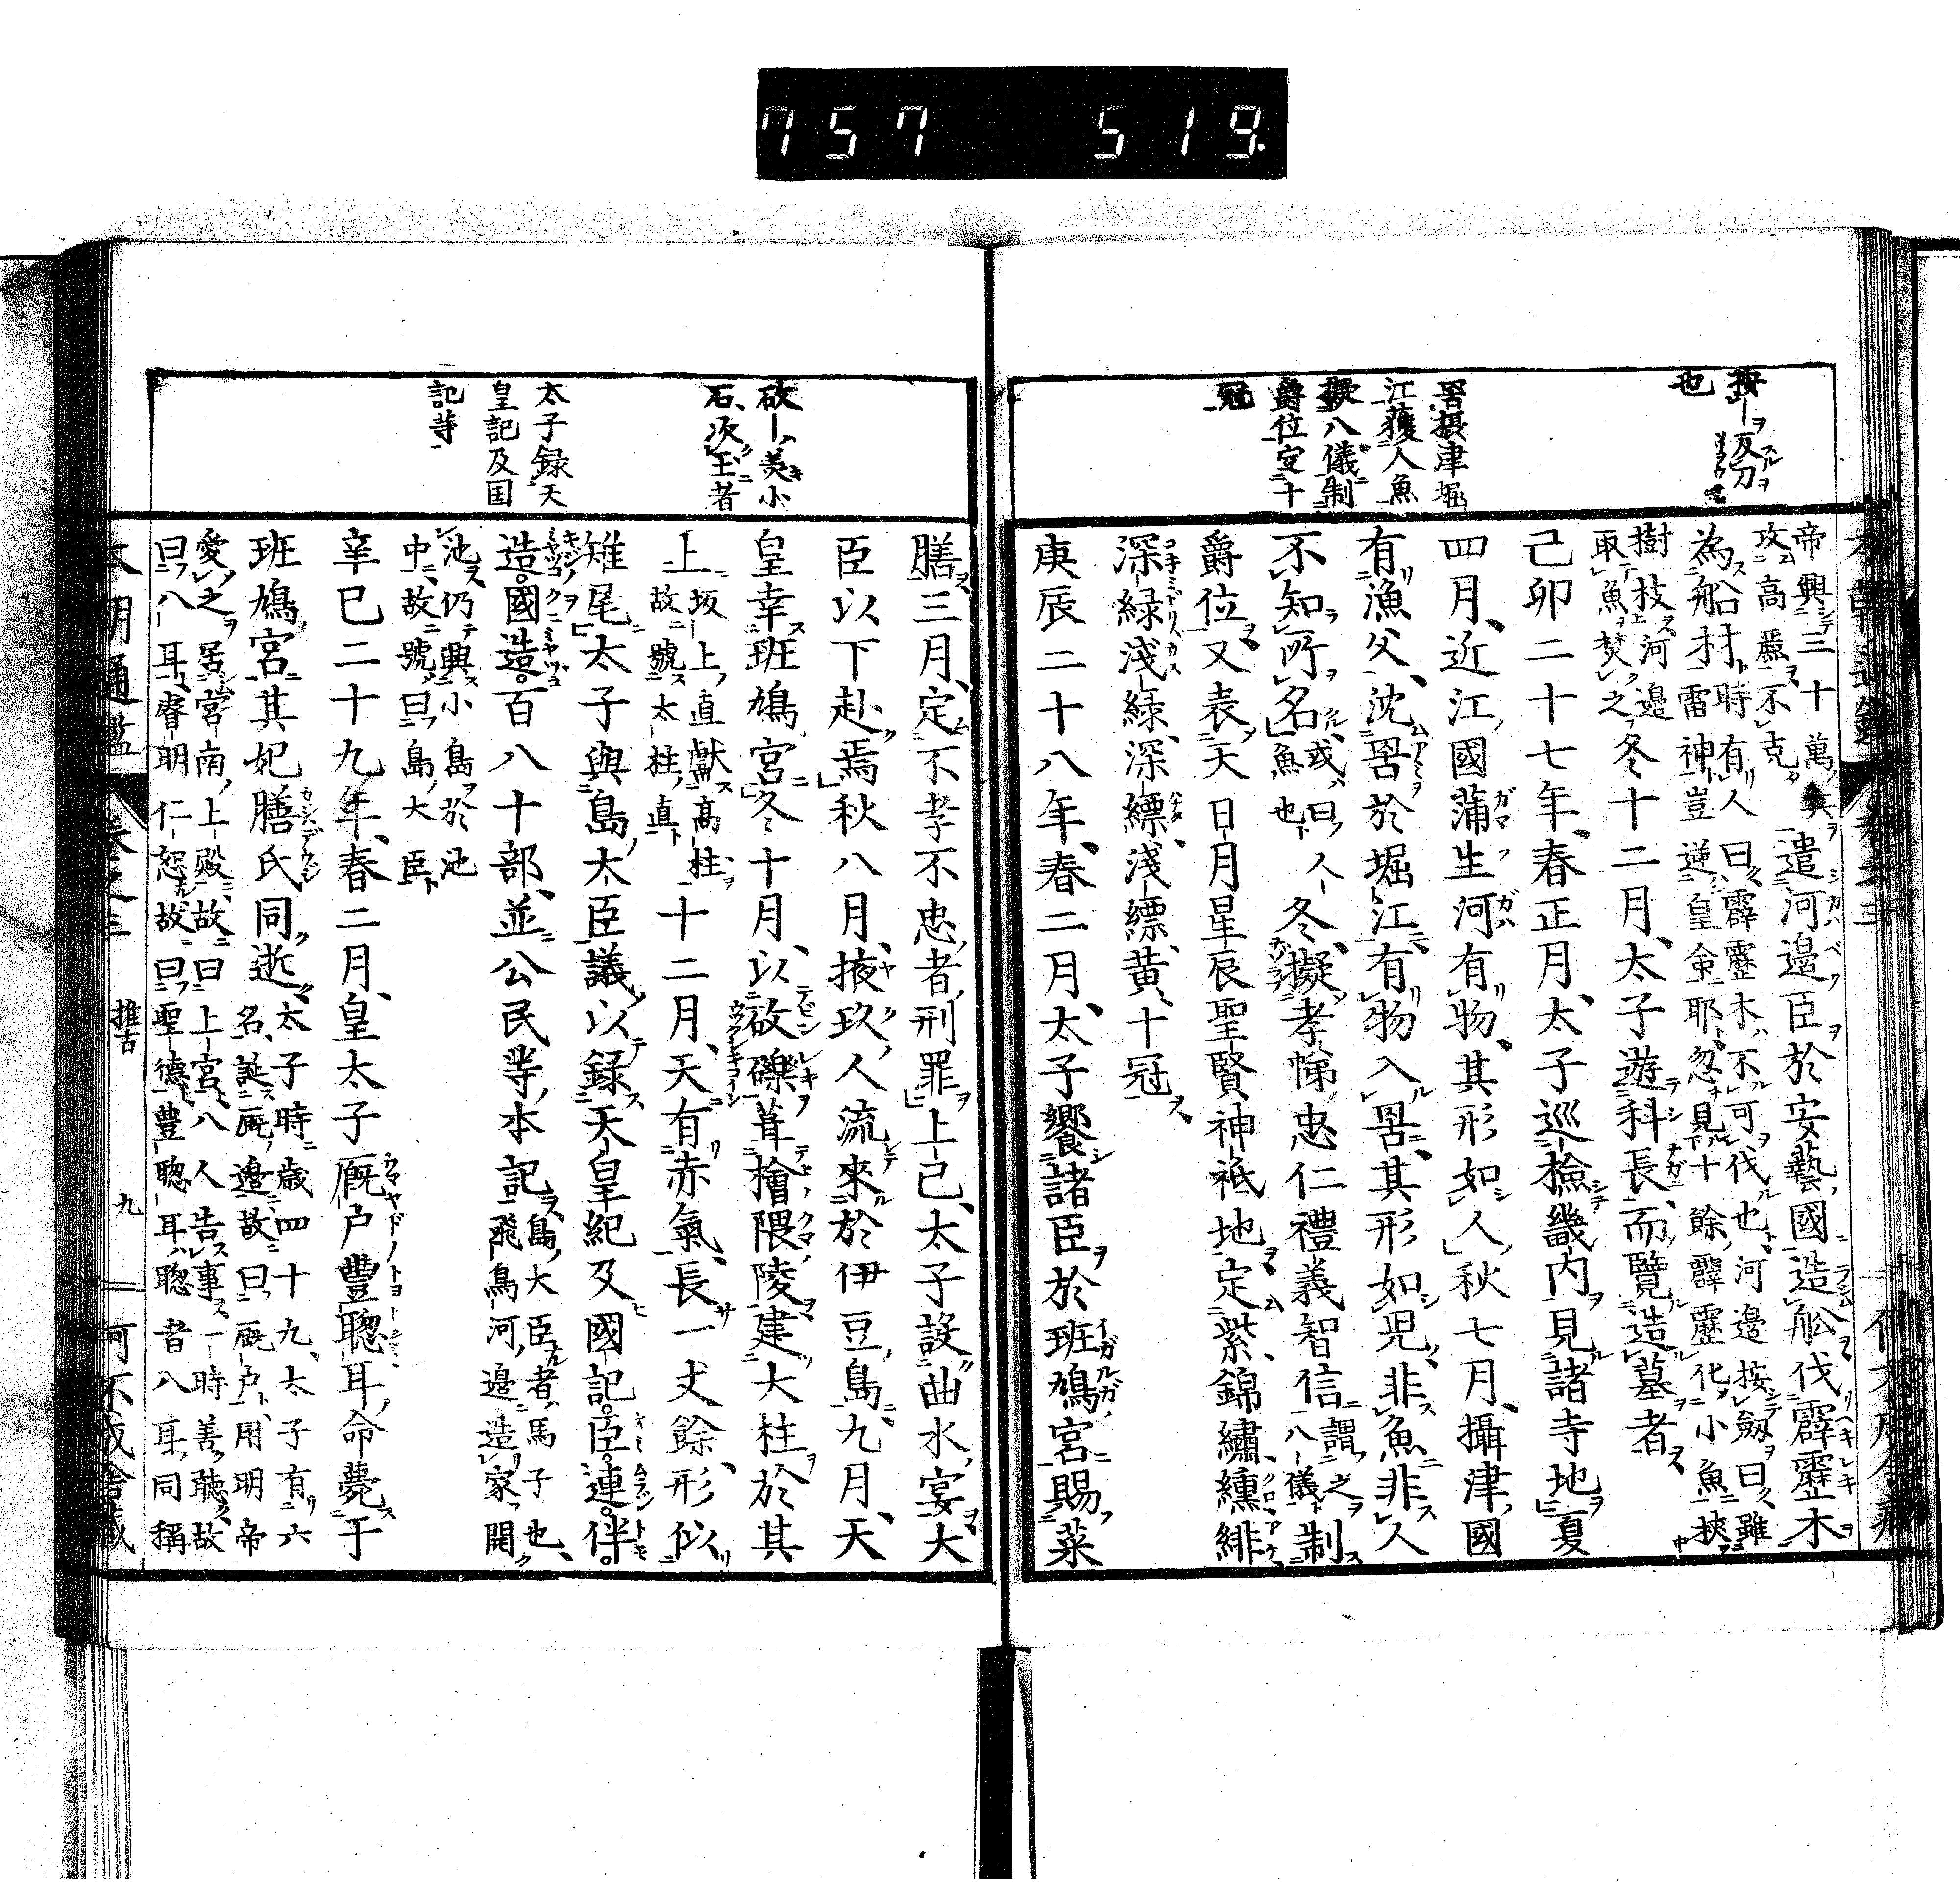 757 519.
按ー反刀
也
罟摂津堀
江獲人魚
擬八儀制
爵位定十
冠
帝興三十萬
攻高麗不克
遣河邊臣於安藝國造舩伐霹靂木
為舩材時有人曰霹靂木不可伐也河邊按劔曰雖
雷神豈逆皇命耶忽見十餘霹靂化小魚挾
樹枝河邊
取魚焚之
冬十二月太子遊科長而覽造墓者
己卯二十七年春正月太子巡撿畿内見諸寺地夏
四月近江國蒲生河有物其形如人秋七月攝津國
有漁父沈罟於堀江有物入罟其形如児非魚非人
不知所名
或曰人
魚也
冬擬孝悌忠仁禮義智信
謂之
八儀
制
爵位又表天日月星辰聖賢神祗地定紫錦繡纁緋
深緑淺緑深縹淺縹黄十冠
庚辰二十八年春二月太子饗諸臣於班鳩宮賜菜
膳三月定不孝不忠者刑罪上己太子設曲水宴大
臣以下赴焉秋八月掖玖人流來於伊豆島九月天
皇幸班鳩宮冬十月以砍礫葺檜隈陵建大柱於其
上
坂上直獻髙柱
故號太柱直
十二月天有赤氣長一丈餘形似
雉尾太子與島太臣議以録天皇紀及國記臣連伴
造國造百八十部並公民等本記
島大臣者馬子也
飛鳥河邊造家開
池仍興小島於池
中故號曰島大臣
辛巳二十九年春二月皇太子厩户豐聰耳命薨于
班鳩宮其妃膳氏同逝
太子時歳四十九太子有六
名誕厩邊故曰厩户用明帝
愛之居宮南上殿故曰上宮八人告事一時善聴故
曰八耳睿明仁恕故曰聖德豊聰耳聰者八耳同稱
砍ー美小
石次玉者
太子録天
皇記及国
記等
本朝通鑑 卷之三 推古 九